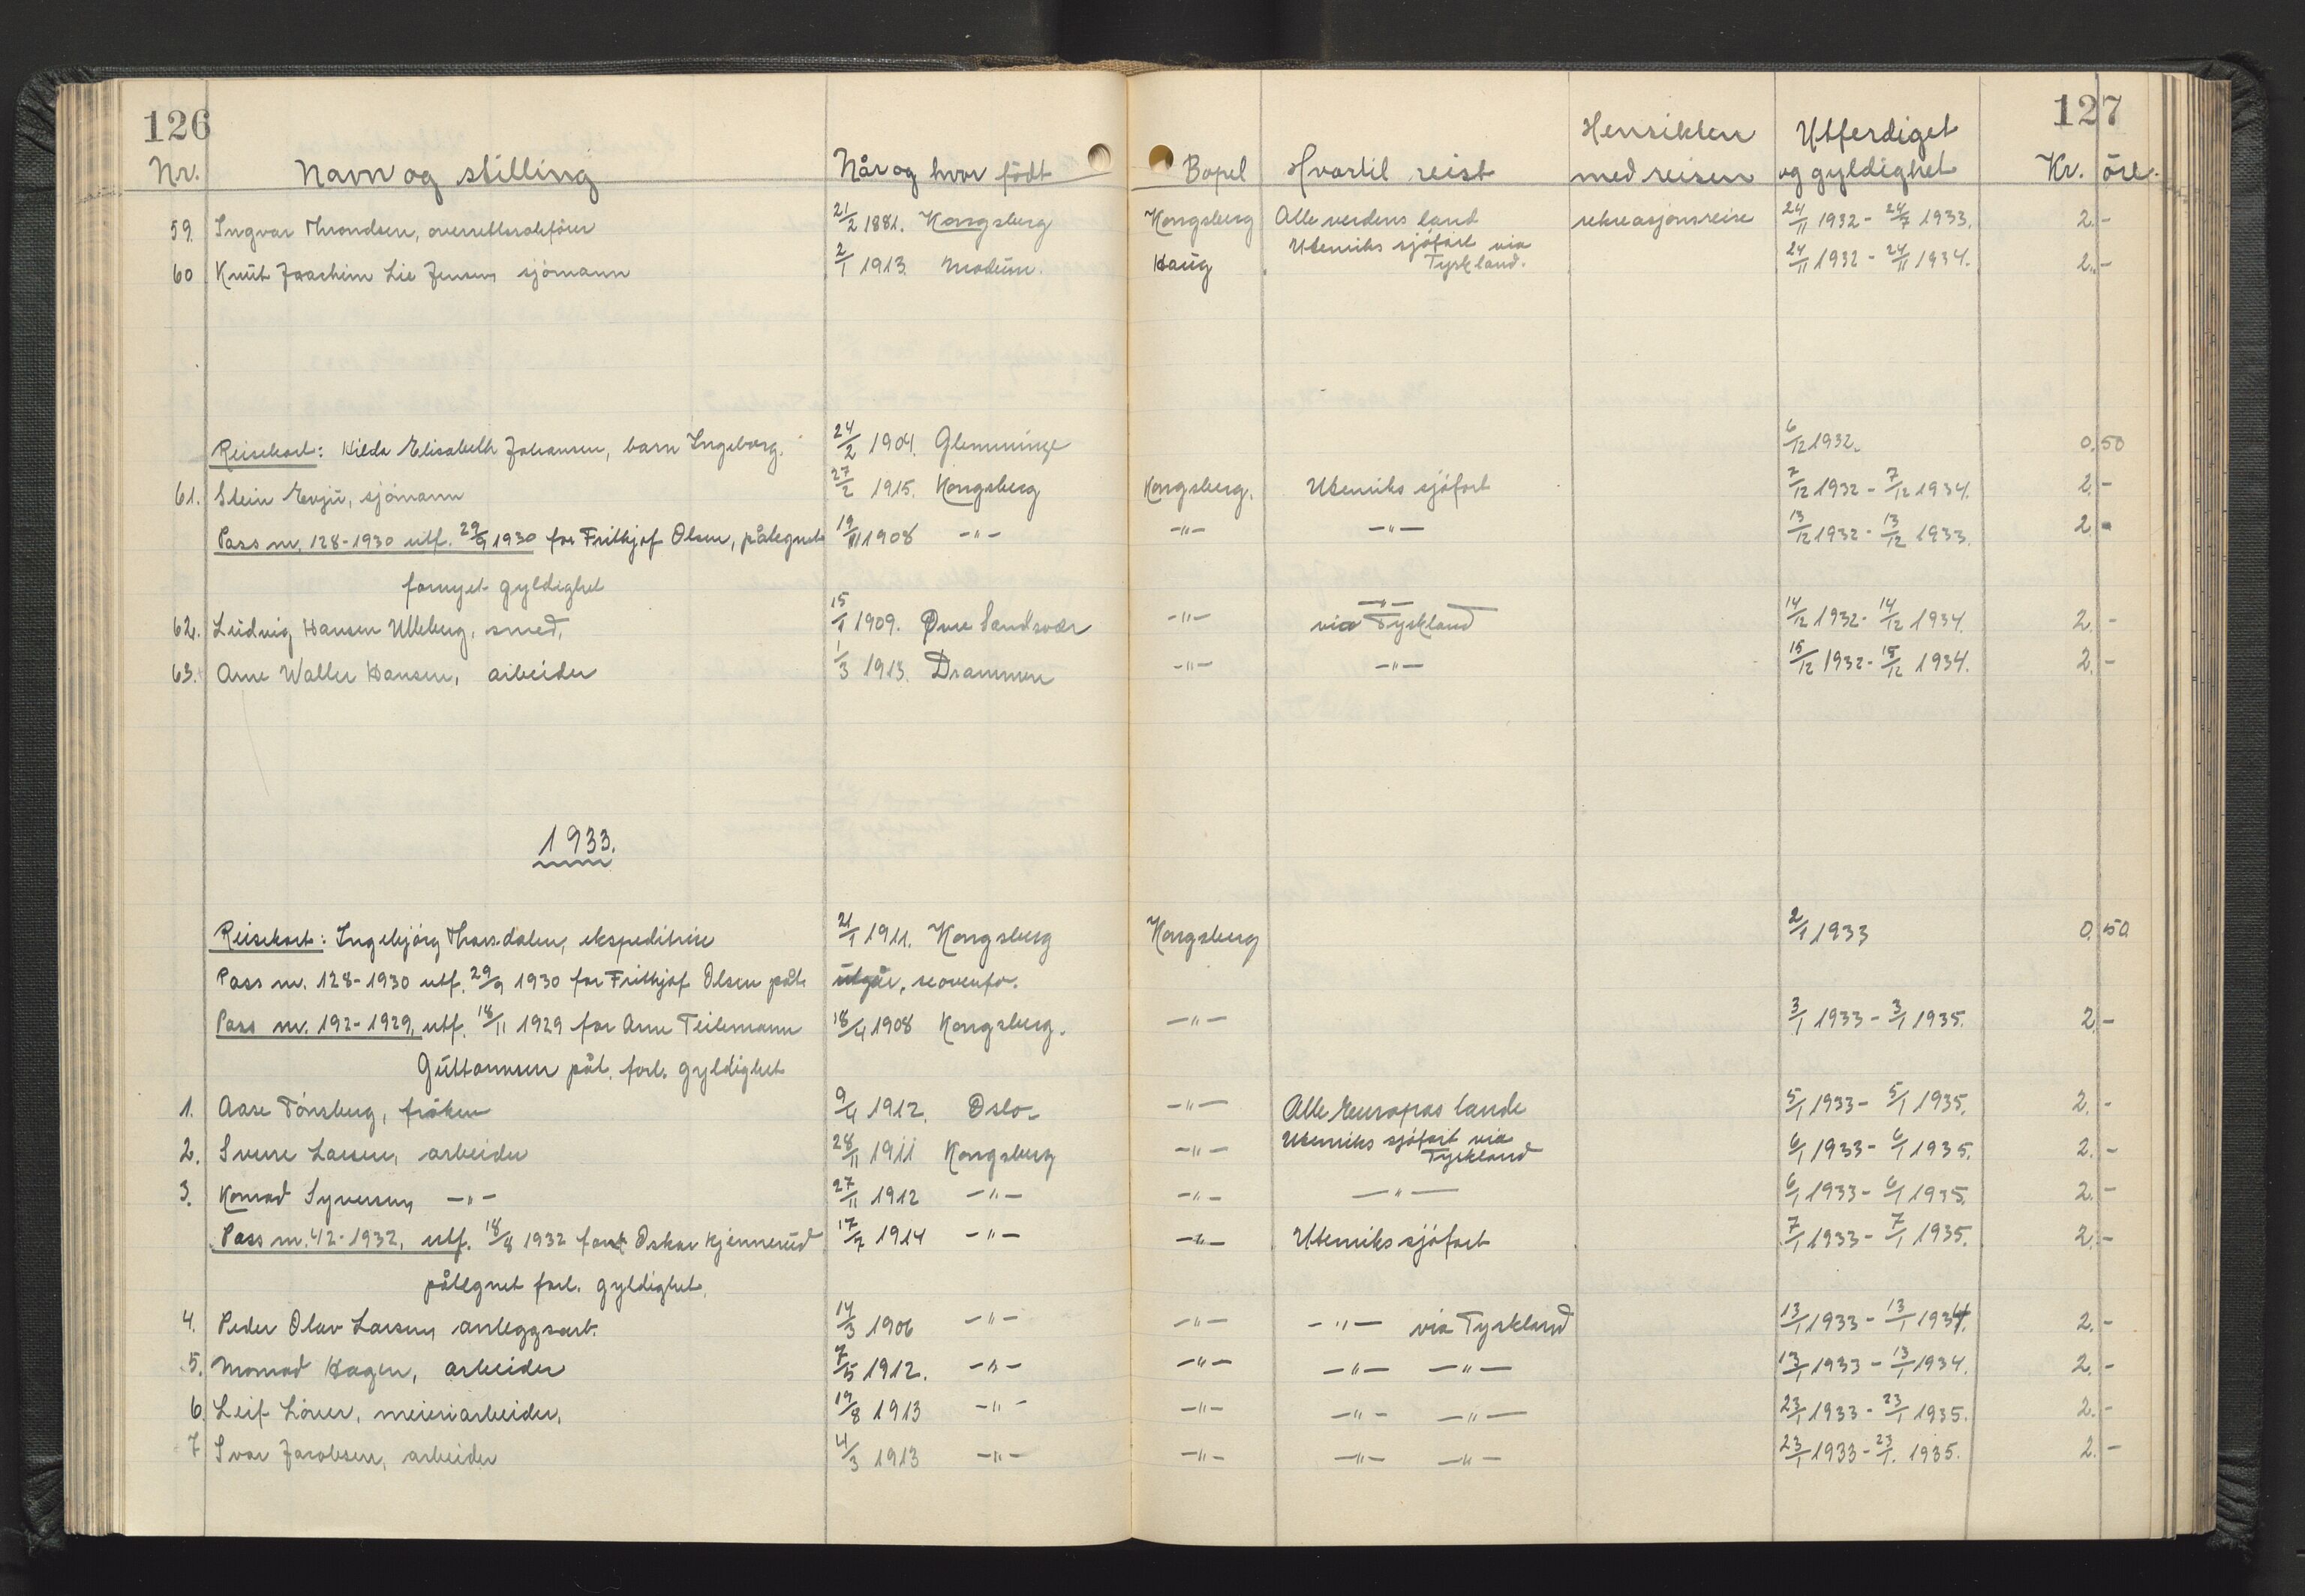 126
127
Nr. Navn og stilling Når og hvor födt Bopel Hvortil reist Hensikten med reisen Utferdiget og gyldighet Kr. öre.
59. Ingvar Throndsen, overrettssakförer 21/2 1881. Kongsberg Kongsberg Alle verdens land rekreasjonsreise 24/11 1932 - 24/7 1933. 2.-
60 Knut Joachim Lie Jensen, sjömann 2/1 1913. Modum. Haug Utenriks sjöfart via Tyskland. 24/11 1932 - 24/11 1934. 2.-
Reisekort: Hilda Elisabeth Johansen, barn Ingeborg. 24/2 1904. Glemminge 6/12 1932. 0.50
61. Stein Evju, sjömann 27/2 1915. Kongsberg Kongsberg. Utenriks sjöfart 7/12 1932 - 7/12 1934. 2.-
Pass nr. 128-1930 utf. 29/9 1930 for Frithjof Olsen, påtegnet 19/11 1908 -"- -"- -"- 13/12 1932 - 13/12 1933. 2.-
fornyet gyldighet
62. Ludvig Hansen Ulleberg, smed, 15/1 1909. Øvre Sandsvær -"- -"- via Tyskland 14/12 1932 - 14/12 1934. 2.-
63. Arne Walter Hansen, arbeider 1/3 1913. Drammen -"- -"- 15/12 1932 - 15/12 1934. 2.-
1933.
Reisekort: Ingebjörg Thorsdalen, ekspeditrise 21/1 1911. Kongsberg Kongsberg 2/1 1933 0.50
Pass nr. 128-1930 utf. 29/9 1930 for Frithjof Olsen påt. utgår, se ovenfor.
Pass nr. 192-1929, utf. 18/11 1929 for Arne Teilemann 18/4 1908 Kongsberg. -"- 3/1 1933 - 3/1 1935. 2.-
Guttormsen påt. forl. gyldighet
1. Aase Tönsberg, fröken 9/4 1912. Oslo- -"- Alle Europas lande 5/1 1933 - 5/1 1935. 2.-
2. Sverre Larsen, arbeider 28/11 1911 Kongsberg -"- Utenriks sjöfart via Tyskland 6/1 1933 - 6/1 1935. 2.-
3. Konrad Syversen, -"- 27/11 1912 -"- -"- -"- 6/1 1933 - 6/1 1935. 2.-
Pass nr. 42-1932, utf. 18/8 1932 for Oskar Kjennerud 17/2 1914 -"- -"- Utenriks sjöfart 7/1 1933 - 7/1 1935. 2.-
påtegnet forl. gyldighet.
4. Peder Olav Larsen, anleggsarb. 14/3 1906 -"- -"- -"- via Tyskland 13/1 1933 - 13/1 1934. 2.-
5. Monrad Hagen, arbeider 7/5 1912. -"- -"- -"- -"- 13/1 1933 - 13/1 1934. 2.-
6. Leif Löver, meieriarbeider, 19/8 1913 -"- -"- -"- -"- 23/1 1933 - 23/1 1935. 2.-
7 Ivar Jacobsen, arbeider 4/3 1913 -"- -"- -"- -"- 23/1 1933 - 23/1. 1935. 2.-